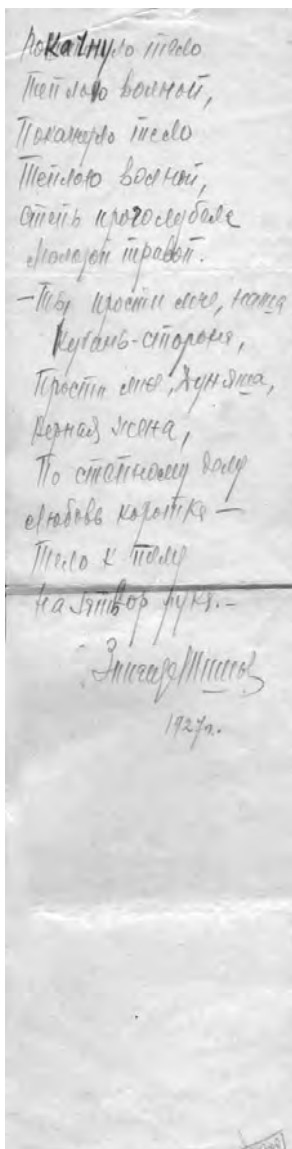 Покачнуло тело
Теплою волной,
Покачнуло тело
Теплою волной,
Степь проголубела
Молодой травой.
— Ты прости мне, наша
Кубань-сторона,
Прости мне, Дуняша,
Верная жена,
По степному долу
Любовь коротка —
Тело к
На затвор рука. —
1927 г.